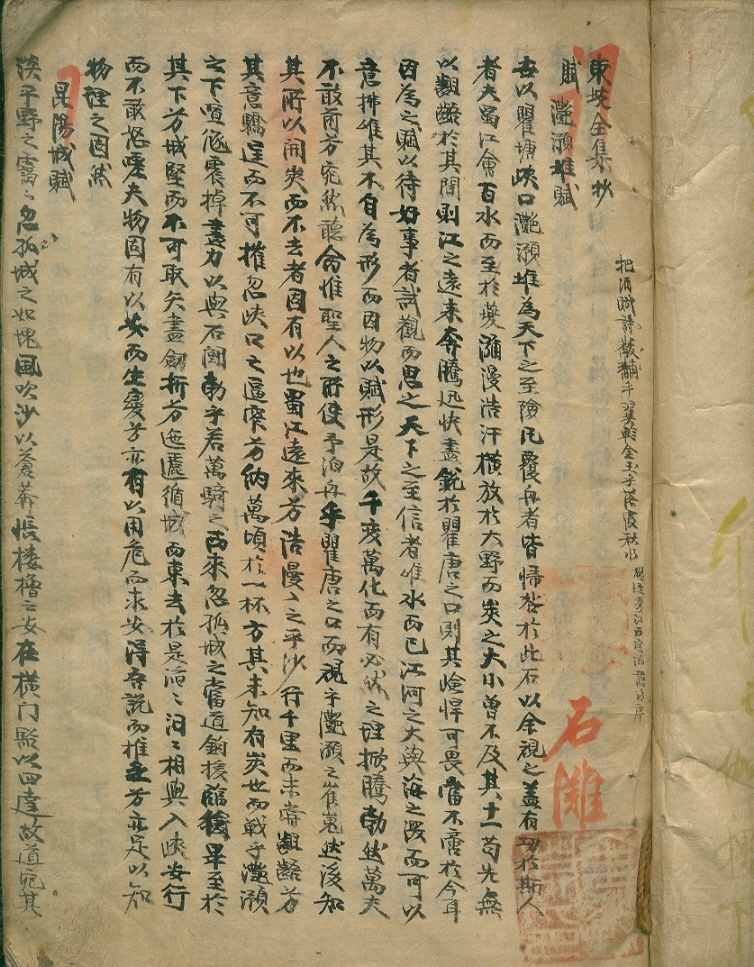 東坡全集抄
賦 灧澦堆賦
世以瞿塘峽口灧澦堆為天下之至險凡覆舟者皆歸咎於此石以余觀之蓋有功於斯人
者夫蜀江會百水而至於夔瀰漫浩汗橫放於大野而峽之大小曾不及其十一苟先無
以齟齬於其間則江之遠來奔騰迅快盡銳於瞿唐之口則其嶮悍可畏當不啻於今耳
因為之賦以待好事者試觀而思之天下之至信者唯水而已江河之大與海之深而可以
意揣唯其不自為形而因物以賦形是故千變萬化而有必然之理掀騰勃怒萬夫
不敢前兮宛然聽命惟聖人之所使予泊舟乎瞿唐之口而觀乎灧澦之崔嵬然後知
其所以開峽而不去者固有以也蜀江遠來兮浩漫々之平沙行千里而未嘗齟齬兮
其意驕逞而不可摧忽峽口之逼窄兮納萬頃於一杯方其未知有峽也而戰乎灧澦
之下喧豗震掉盡力以與石鬪勃乎若萬騎之西來忽孤城之當道鉤援臨衝畢至於
其下兮城堅而不可取矢盡劍折兮迤邐循城而東去於是滔々汩々相與入峽安行
而不敢怒嗟夫物固有以安而生變兮亦有以用危而求安得吾說而推之兮亦足以知
物理之固然
昆陽城賦
淡平野之靄々忽孤城之如塊風吹沙以蒼莽悵樓櫓之安在橫門豁以四達故道宛其
石灘